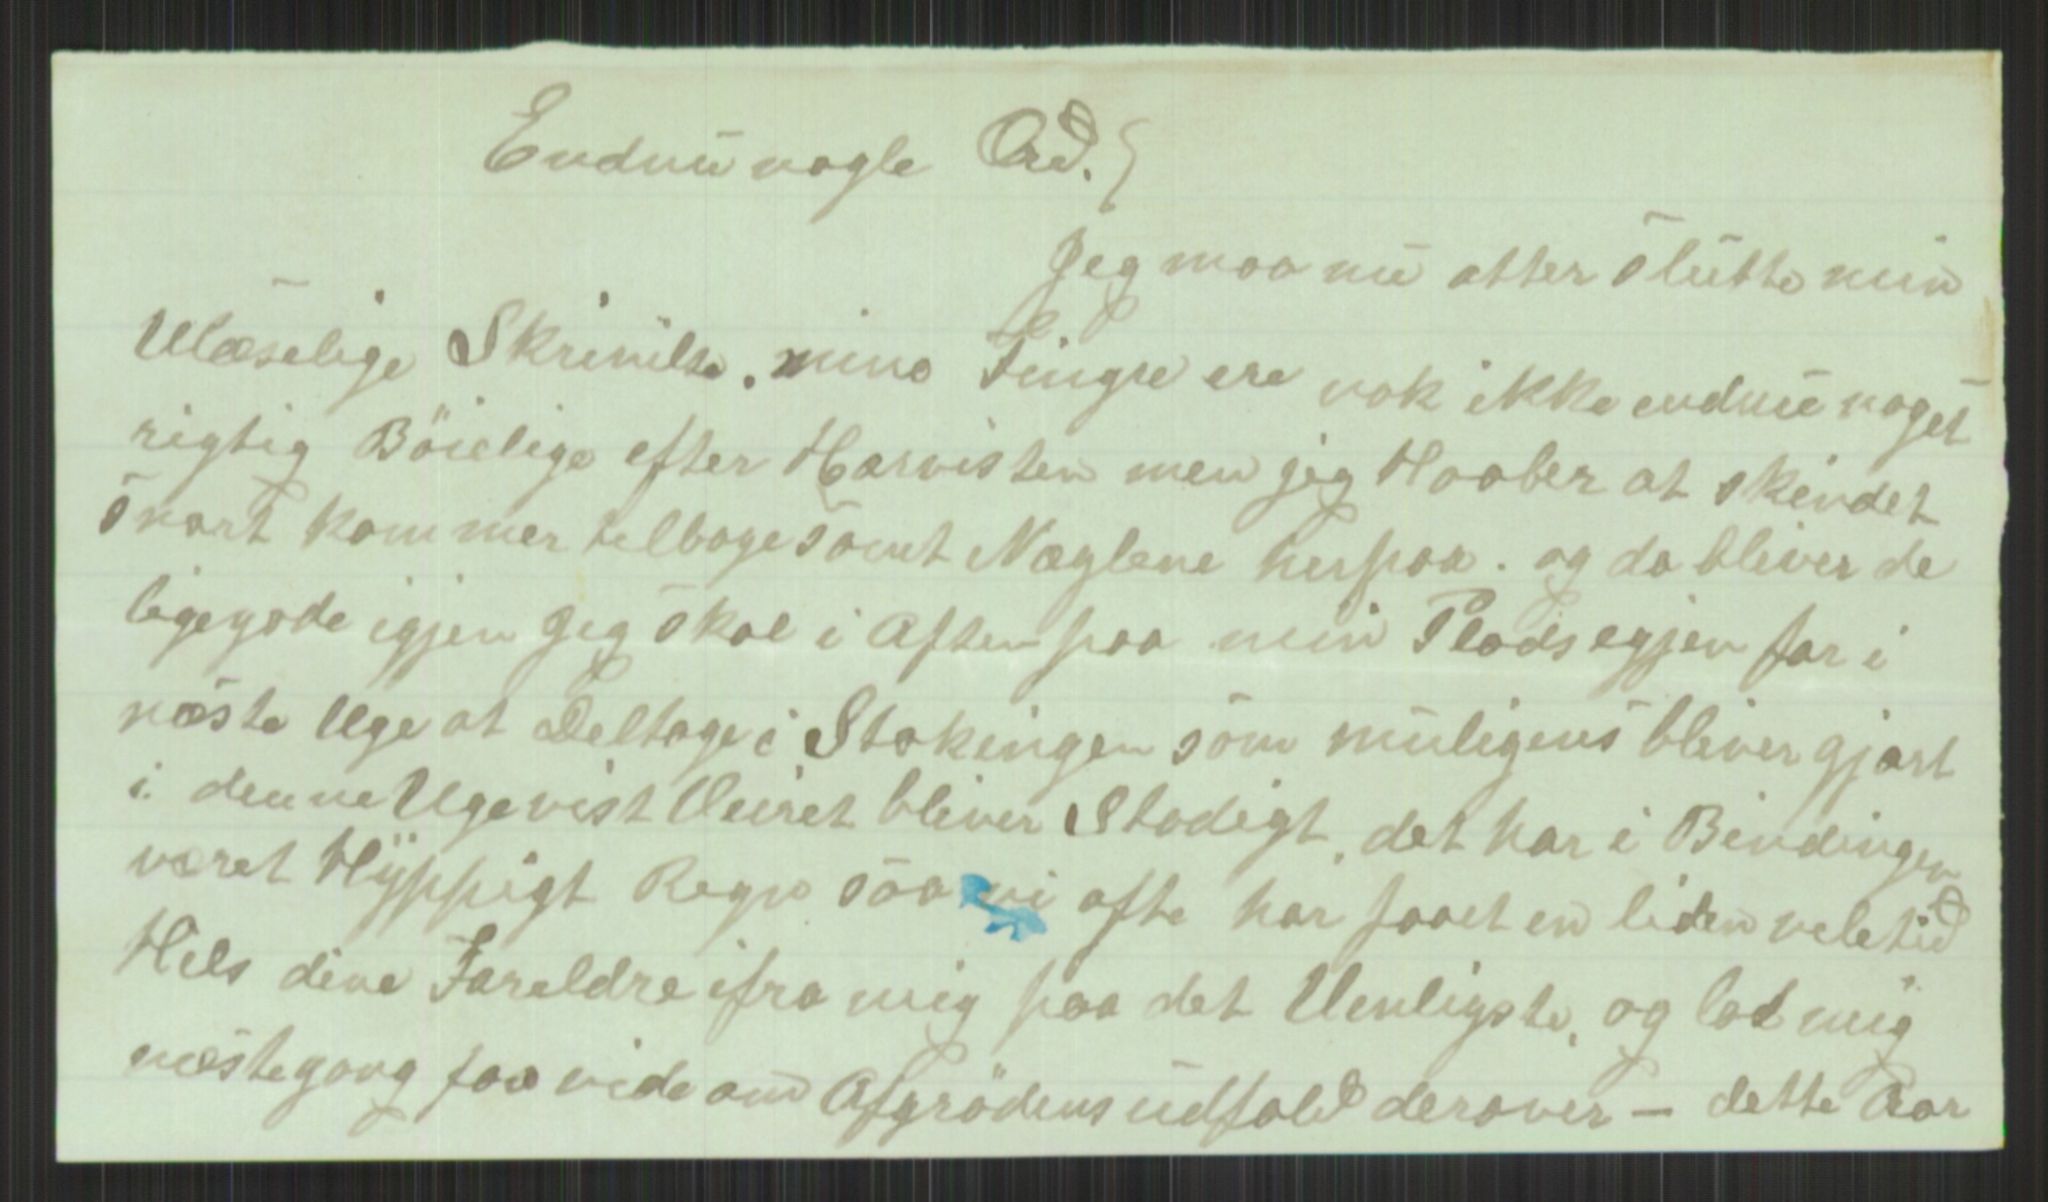 Endnu nogle Ord.
Jeg maa nu atter slutte min
Ulæselige Skrivilse. mine Fingre ere nok ikke endnu noget
rigtig Böielige efter Harvisten men jeg Haaber at skindet
snart kommer telbage samt Næglene herpaa. og da bliver de
ligegode igjen Jeg skal i Aften paa min Plads egjen for i
næste Uge at Deltage i Stakingen som muligens bliver gjort
i denne Uge vist Veiret bliver Stadigt, det har i Bindingen
været Hÿppigt Regn saa vi ofte har faaet en liden veletid
Hils dine Foreldre ifra mig paa det Venligste, og lad mig
næstegang faa vide om Afgrödens udfald derover — dette Aar